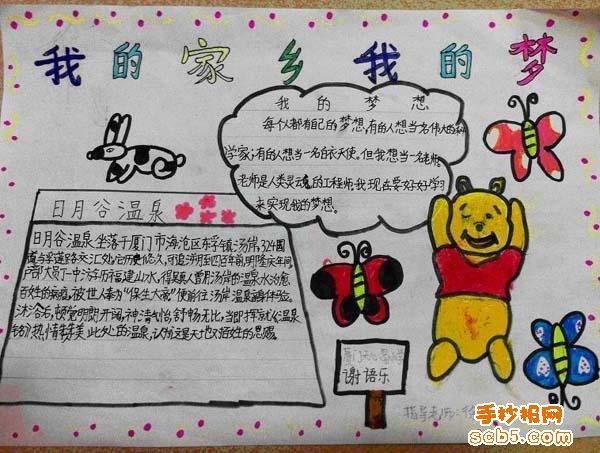 我的家乡我的梦
我的梦想
每个人都有自己的梦想,有的人想当名伟大的科
学家;有的人想当一名白衣天使。但我想当一名老师。
老师是人类灵魂的工程师我现在要好好学习
来实现我的梦想。
日月谷温泉
日月谷温泉坐落于厦门市海沧区东孚镇汤岸,324国
道与孚莲路交汇处,它历史悠久,可追溯到四百年前,明隆庆年间
百姓的病痛,被世人奉为“保生大帝”便前往汤岸温泉亲身体验。
沐浴后,顿觉明朗开阔,神清气怡,舒畅无比,当即挥就《温泉
》热情赞美此处的温泉,认为这是天地对百姓的恩赐。
谢语乐
指导老师:
手抄报网
scb5.com